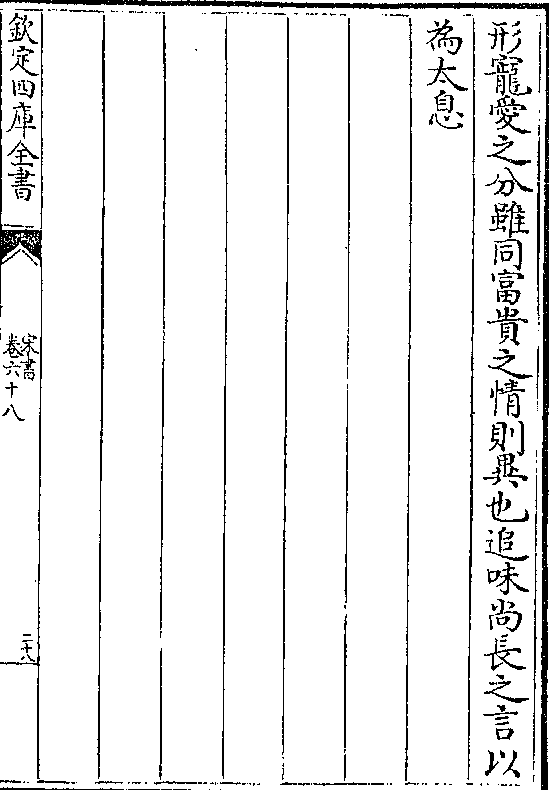 形寵愛之分雖同富貴之情則異也追味尚長之言以
為太息
欽定四庫全書
宋書
卷六十八
二十八